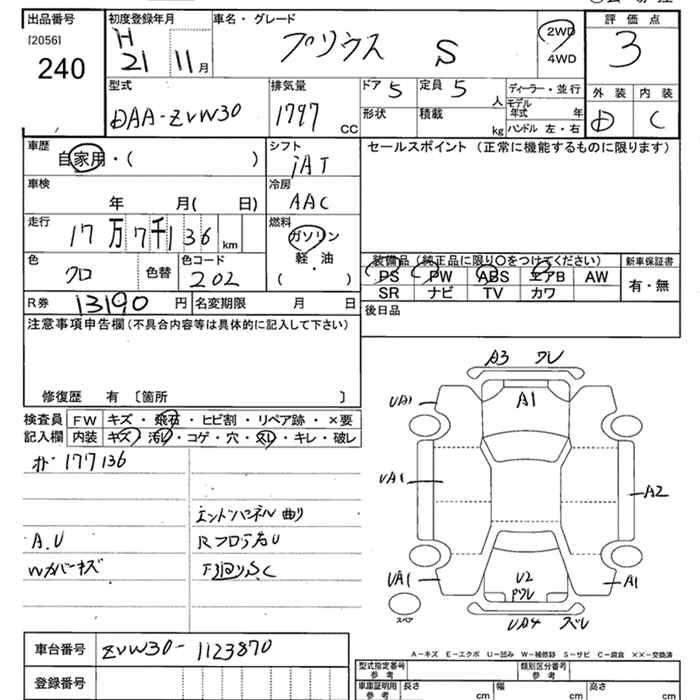 出品番号
[2056]
240
初度登録年月
H
21 11月
車名・グレード
プリウス S
2WD
4WD
評価点
3
外装 内装
D C
型式
DAA-ZVW30
排気量
1797 CC
ドア 5
定員 5 人
形状
積載 kg
ディーラー・並行
モデル年式 年
ハンドル 左・右
車歴
自家用・( )
シフト
iAT
セールスポイント (正常に機能するものに限ります)
車検
年 月( 日)
冷房
AAC
走行
17万7千136 km
燃料
ガソリン
・
軽・油
( )
色
クロ
色替
色コード
202
装備品 (純正品に限り〇をつけてください)
PS PW ABS エアB AW
SR ナビ TV カワ
新車保証書
有・無
R券 13190 円
名変期限 月 日
後日品
注意事項申告欄(不具合内容等は具体的に記入して下さい)
修復歴 有 〔箇所 〕
検査員記入欄
FW キズ・飛石・ヒビ割・リペア跡・×要
内装 キズ・汚レ・コゲ・穴・スレ・キレ・破レ
177136
エンドパネル曲り
A.U
RフロアU
Wカバーキズ
下回りS.C
A3 ワレ
UA1
A1
UA1
A2
UA1
U2
ワレ
A1
UA4 ズレ
スペア
A-キズ E-エクボ U-凹み W-補修跡 S-サビ C-腐食 ××-交換済
車台番号 ZVW30-1123870
登録番号
型式指定番号
参考
類別区分番号
参考
車庫証明用
参考
長さ cm
幅 cm
高さ cm